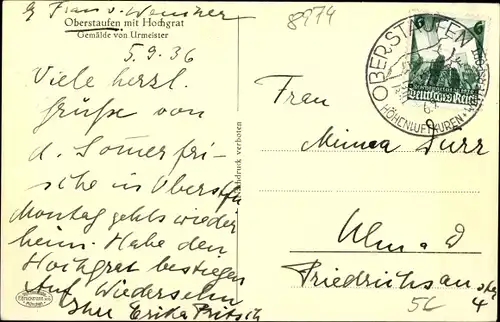 Frau v.
8974
Oberstaufen mit Hochgrat
Gemälde von Urmeister
5.9.36
Viele herzl.
Grüße von
d. Somerfri-
sche in Oberstfn
Montag gehts wieder
heim. Habe den
Hochgrat bestiegen
Auf Wiedersehn
Ihre Erika Fritsch
Nachdruck verboten
OBERSTAUFEN
HÖHENLUFTKUREN
6 6
Deutsches Reich
Frau
Minna Durr
Ulm a D
Friedrichsau
4
56